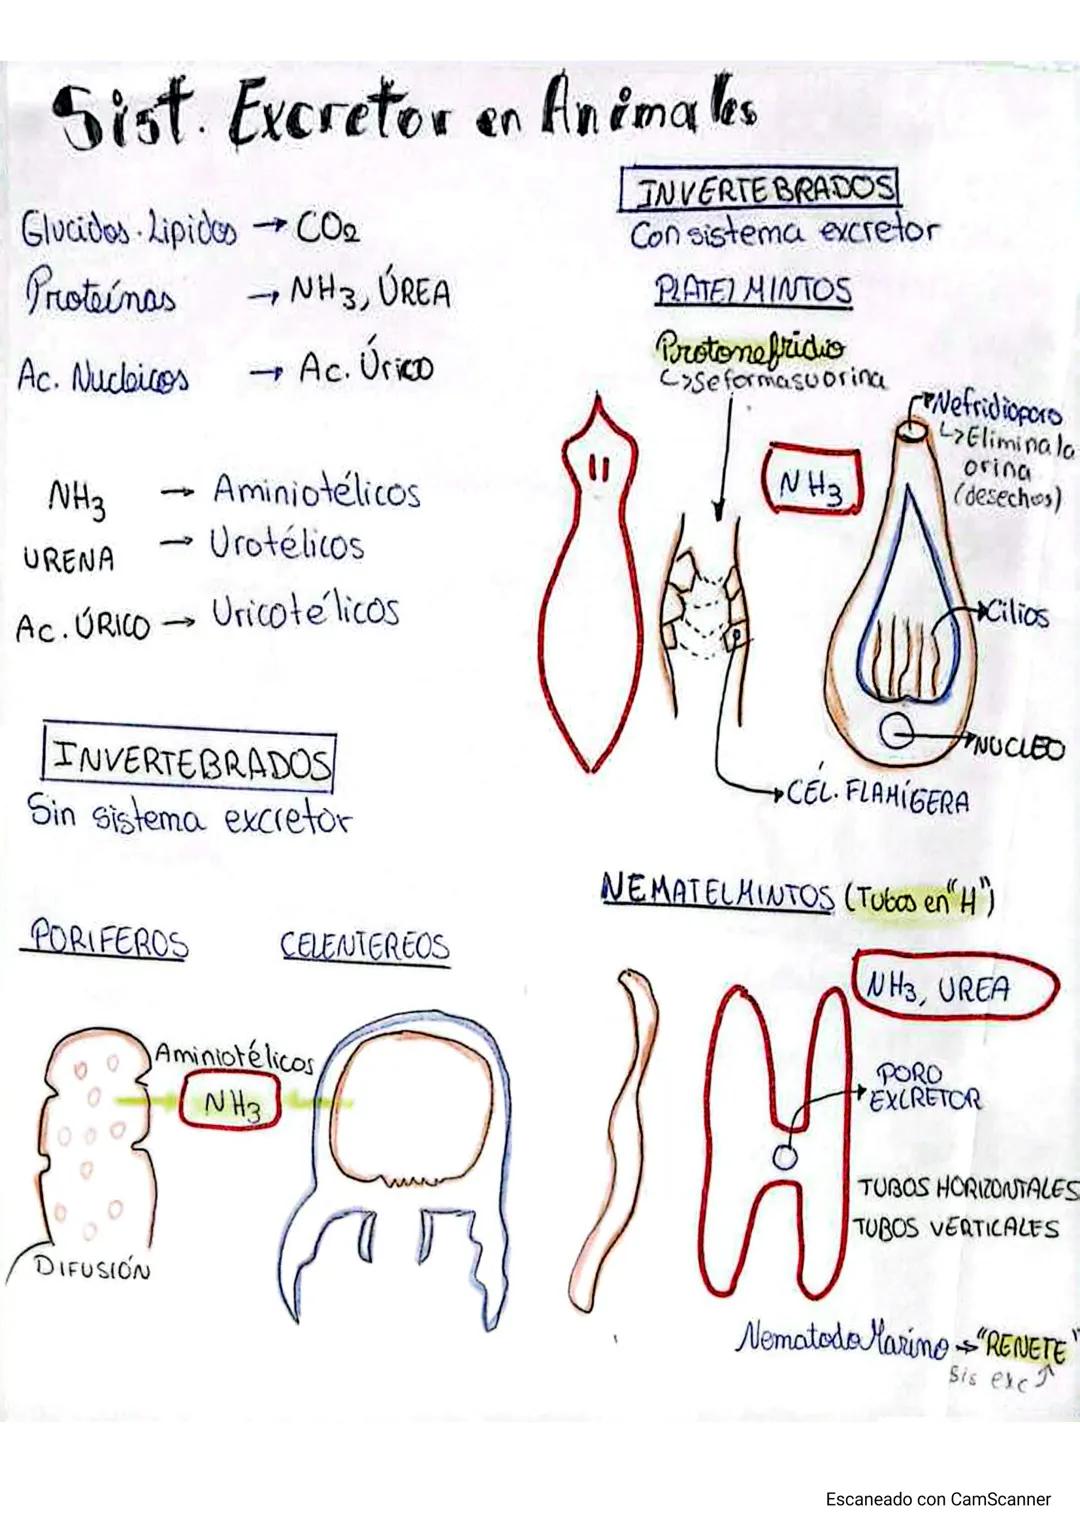 Sist. Excretor en Animales
Glucidos. Lipidos → CO2
Proteínas → NH3, ÚREA
Ac. Nucleicos → Ac. Úrico
NH3 → Aminiotélicos
URENA → Urotélicos
Ac. ÚRICO → Uricotélicos
INVERTEBRADOS
Sin sistema excretor
PORIFEROS
CELENTEREOS
Aminiotélicos
NH3
DIFUSIÓN
INVERTEBRADOS
Con sistema excretor
PLATELMINTOS
Protonefridio
↳ Se forma su orina
NH3
Nefridioporo
↳ Elimina la
orina
(desechos)
Cilios
NUCLEO
CÉL. FLAMÍGERA
NEMATELMINTOS (Tubos en "H")
NH3, UREA
PORO
EXCRETOR
TUBOS HORIZONTALES
TUBOS VERTICALES
Nematodo Marino → "RENETE"
Sis exc ↑
Escaneado con CamScanner